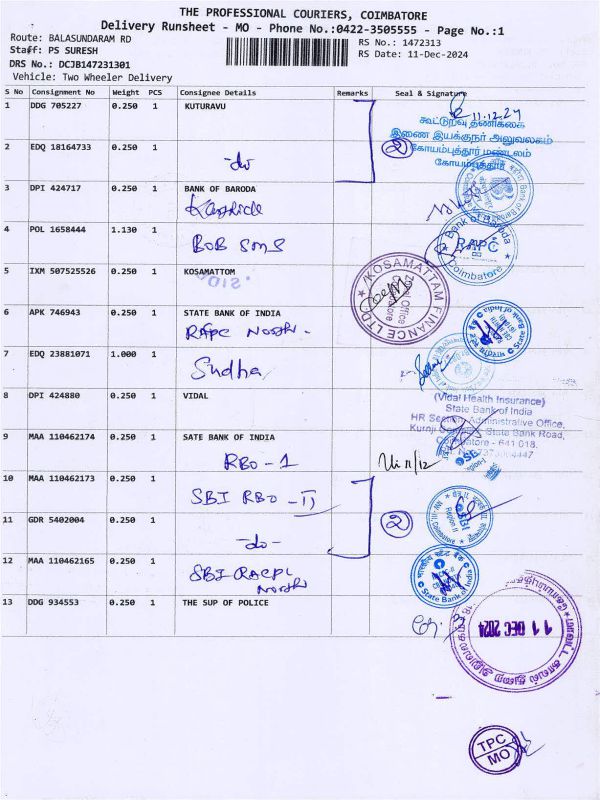 THE PROFESSIONAL COURIERS, COIMBATORE
Delivery Runsheet - MO - Phone No.:0422-3505555 - Page No.:1
Route: BALASUNDARAM RD
RS No.: 1472313
Staff: PS SURESH
RS Date: 11-Dec-2024
DRS No.: DCJB147231301
Vehicle: Two Wheeler Delivery
S No Consignment No Weight PCS Consignee Details Remarks Seal & Signature
1 DDG 705227 0.250 1 KUTURAVU
11.12.24
கூட்டுறவு தணிக்கை
இணை இயக்குநர் அலுவலகம்
கோயம்புத்தூர் மண்டலம்
கோயம்புத்தூர்
2 EDQ 18164733 0.250 1
-do
2
3 DPI 424717 0.250 1 BANK OF BARODA
4 POL 1658444 1.130 1
BOB SMS
Bank of Baroda
RAPC
Coimbatore
5 IXM 507525526 0.250 1 KOSAMATTOM
KOSAMATTAM FINANCE LTD
Zonal Office
Coimbatore
6 APK 746943 0.250 1 STATE BANK OF INDIA
RAPC North -
State Bank of India
7 EDQ 23881071 1.000 1
Sudha
8 DPI 424880 0.250 1 VIDAL
(Vidal Health Insurance)
State Bank of India
HR Section, Administrative Office,
State Bank Road,
Coimbatore - 641 018.
9 MAA 110462174 0.250 1 SATE BANK OF INDIA
RBO - 1
11/12
10 MAA 110462173 0.250 1
SBI RBO - II
SBI
Region II
11 GDR 5402004 0.250 1
-do-
2
12 MAA 110462165 0.250 1
SBI RACPC
North
State Bank of India
13 DDG 934553 0.250 1 THE SUP OF POLICE
11 DEC 2024
TPC
MO